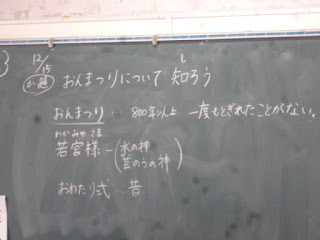 12/15
か題 おんまつりについて 知ろう
し
おんまつり… 800年以上 一度もとぎれたことがない。
わかみや さま
若宮様-(水の神
芸のうの神)
おわたり式… 昔